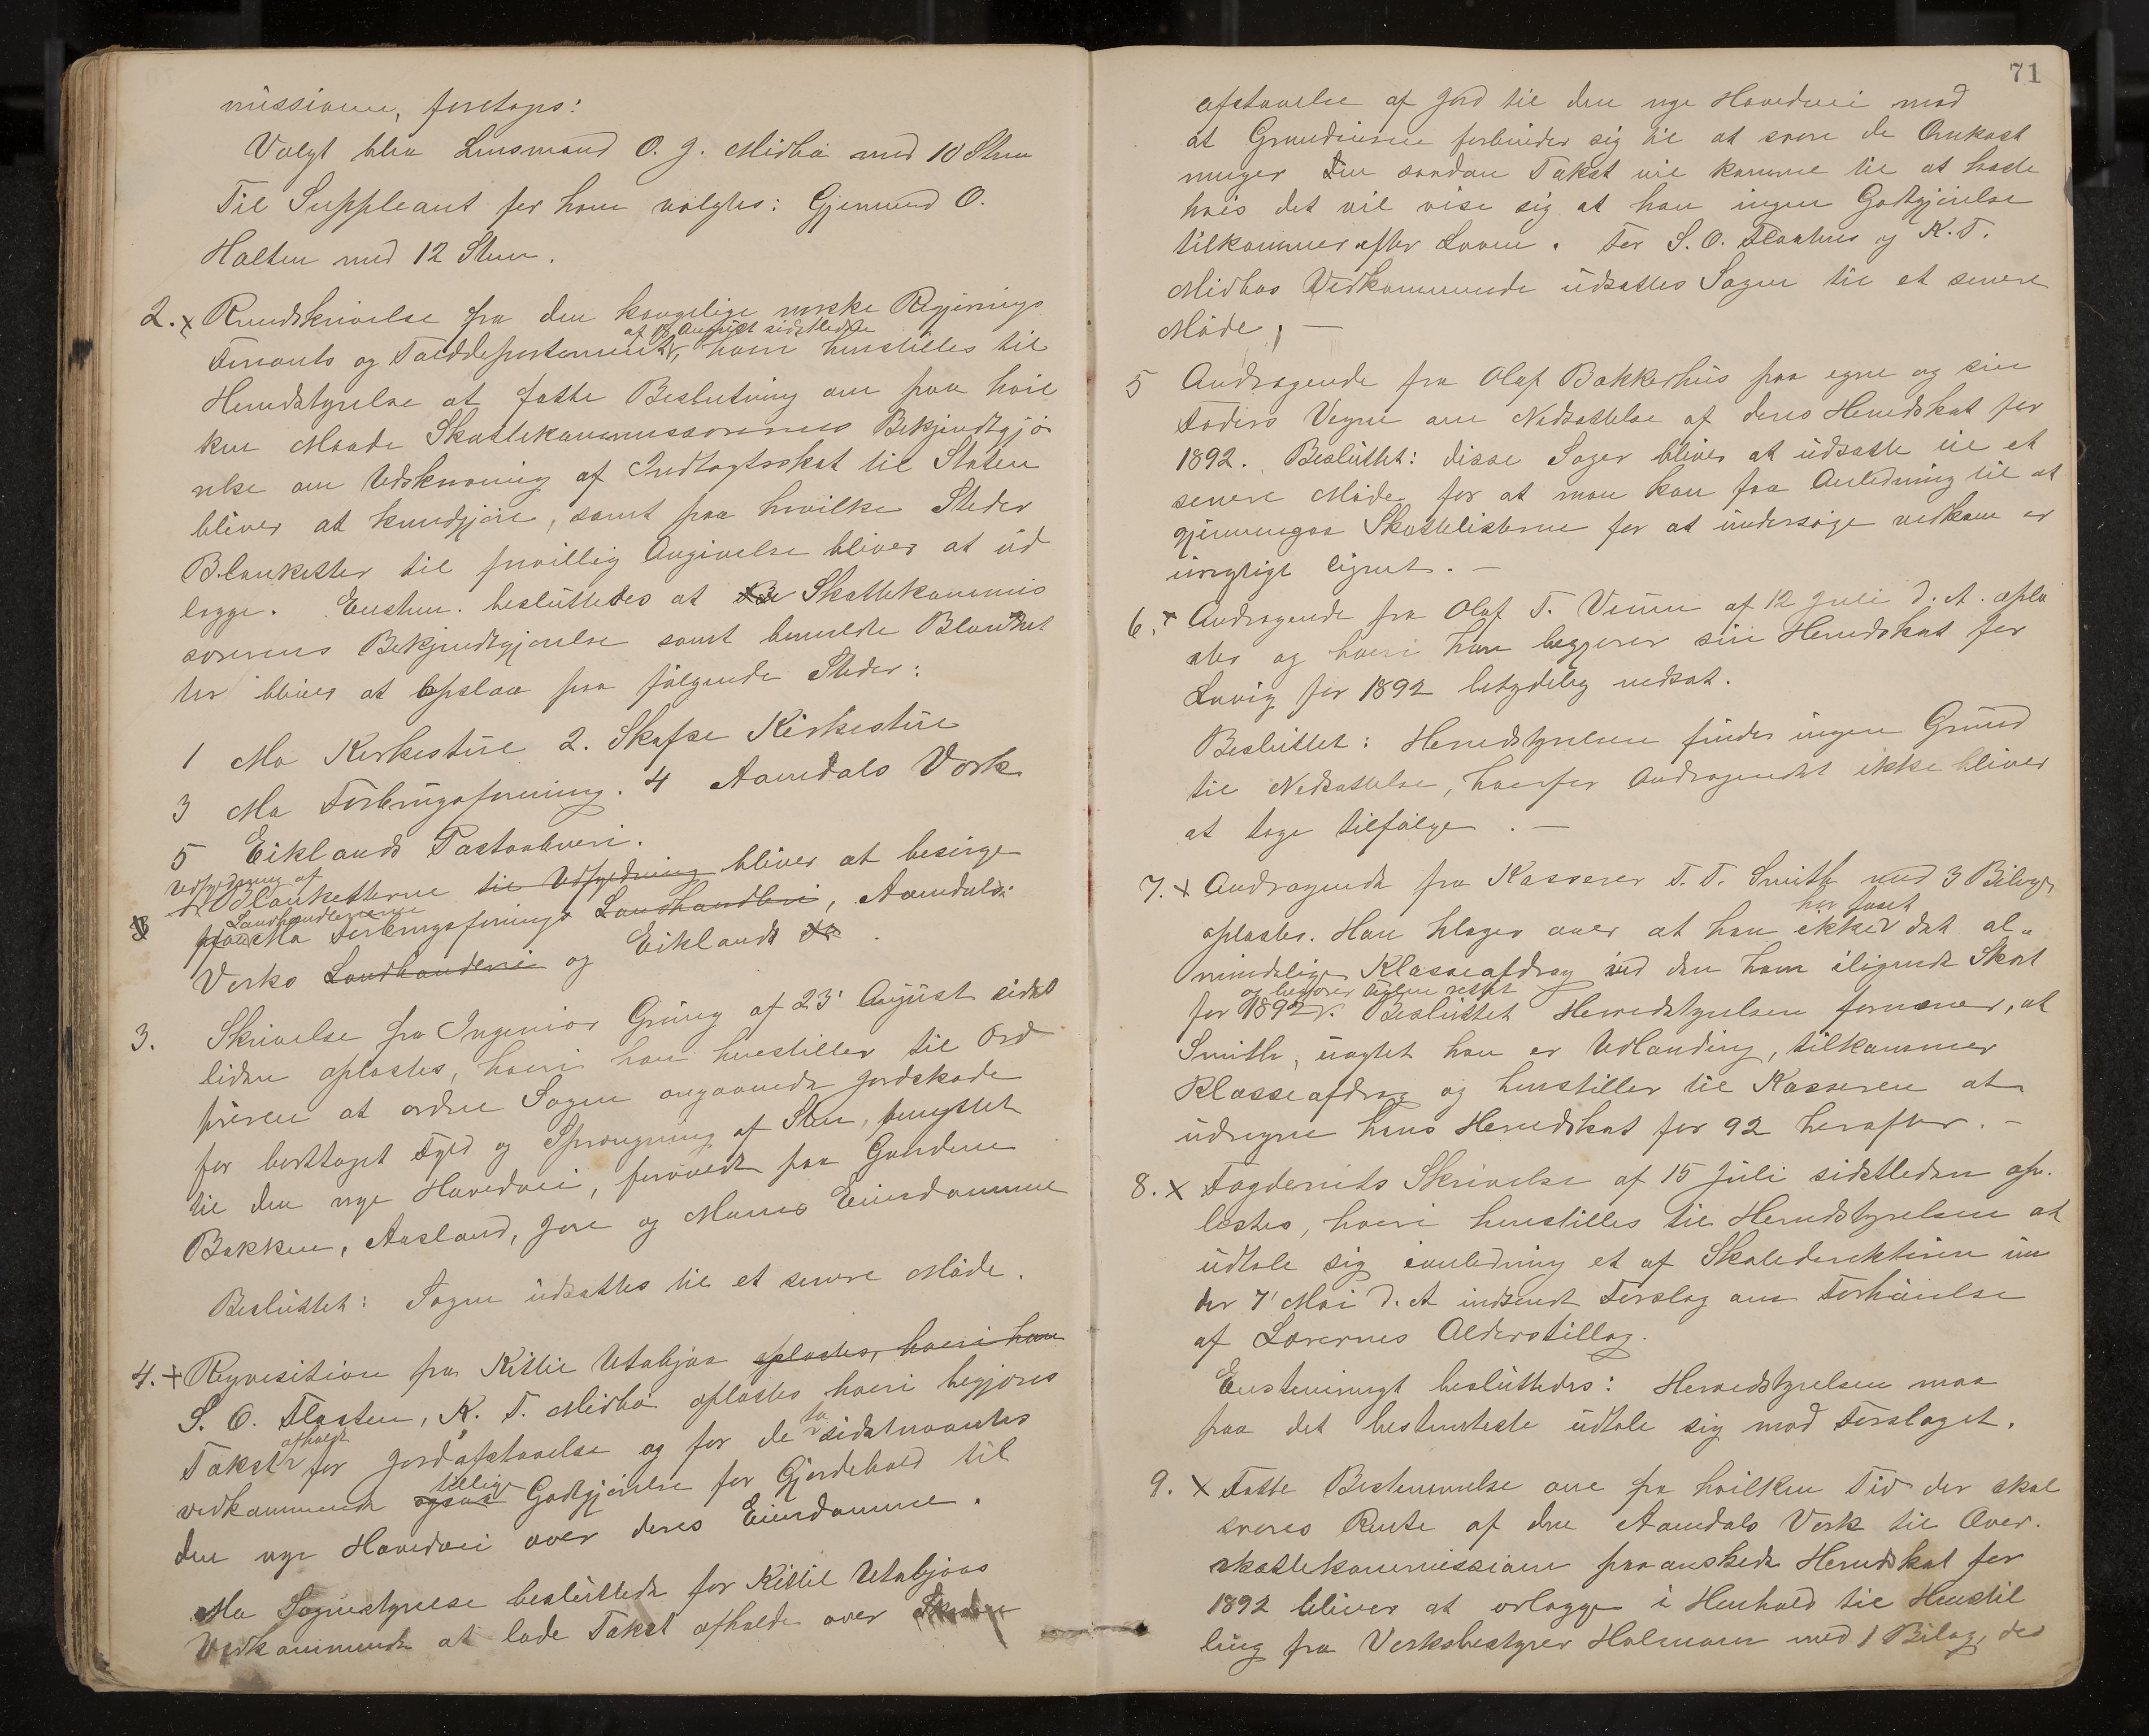 missionen, foretoges:
Valgt blev Lensmand O. J. Midbø med 10 Stem
Til Suppleant for ham valgtes: Gjermund O.
Holten med 12 Stem.
2. x Rundskrivelse fra den kongelige norske Regjerings
Finants og Tolddepartement, af 18 August sidstledne hvori henstilles til
Herredstyrelse at fatte Beslutning om paa hvil
ken Maade Skattekommissionens Bekjendtgjø
relse om Udskrivning af Indtægtsskat til Staten
bliver at kundgjøre, samt paa hvilke Steder
Blanketter til frivillig Angivelse bliver at ud
lægge. Enstem. besluttedes at Skattekommis
sionens Bekjendtgjørelse samt bemeldte Blanket
ter bliver at opslaa paa følgende Steder:
1 Mo Kirkestue 2. Skafse Kirkestue
3 Mo Forbrugsforening. 4 Aamdals Værk
5 Eiklands Postaabneri.
Udfyldning af
Blanketterne til Udfyldning bliver at besørge
Landhandlerierne
paa Mo Forbrugsforenings Landhandleri, Aamdals
Værks Landhandleri og Eiklands
3. Skrivelse fra Ingeniør Grüng af 23' August sidst
leden oplæstes, hvori han henstiller til Ord
føreren at ordne Sagen angaaende Jordskade
for borttaget Fyld og Sprængning af Sten, benyttet
til den nye Hovedvei, forøvedt paa Gaardene
Bakken, Aasland, Jore og Moens Eiendomme
Besluttet: Sagen udsættes til et senere Møde.
4. + Reqvisition fra Kittil Utabjaa oplæstes, hvori han
S. O. Flaaten, K. T. Midbø oplæstes hvori begjæres
Takst afholdt for Jordafstaaelse og for de to sidstnævntes
vedkommende ogsaa tillige Godtgjørelse for Gjerdehold til
den nye Hovedvei over deres Eiendomme.
Mo Sognestyrelse besluttede for Kittil Utabjaas
Vedkommende at lade Takst afholde over
71
afstaaelse af Jord til den nye Hovedvei mod
at Grundeieren forbinder sig til at svare de Omkost
ninger den saadan Takst vil komme til at have
hvis det vil vise sig at han ingen Godtgjørelse
tilkommer efter Loven. For S. O. Flaatens og K. T.
Midbøs Vedkommende udsættes Sagen til et senere
Møde. —
5 Andragende fra Olaf Bakkerhus paa egne og sin
Faders Vegne om Nedsættelse af deres Herredskat for
1892. Besluttet: disse Sager bliver at udsætte til et
senere Møde for at man kan faa Anledning til at
gjennemgaa Skattelisterne for at undersøge vedkom er
urigtigt lignet. —
6. + Andragende fra Olaf T. Vinen af 12 Juli d. A. oplæ
stes og hvori han begjærer sin Herredskat for
Lovig for 1892 betydelig nedsat.
Besluttet: Herredstyrelsen finder ingen Grund
til Nedsættelse, hvorfor Andragendet ikke bliver
at tage tilfølge. —
7. x Andragende fra Kasserer T. T. Smith med 3 Bilage
oplæstes. Han klager over at han ikke har faaet det al-
mindelige Klasseafdrag ved den ham ilignede Skat
for 1892 og begjærer Feilen rettet. Besluttet Herredstyrelsen formener, at
Smith, uagtet han er Udlænding, tilkommer
Klasseafdrag og henstiller til Kasseren at
udregne hans Herredskat for 92 herefter. —
8. x Fogderiets Skrivelse af 15 Juli sidstleden op-
læstes, hvori henstilles til Herredstyrelsen at
udtale sig ianledning et af Skoledirektøren un
der 7' Mai d. A indsendt Forslag om Forhøielse
af Lærernes Alderstillæg.
Enstemmigt besluttedes: Herredstyrelsen maa
paa det bestemteste udtale sig mod Forslaget.
9. x Fatte Bestemmelse om fra hvilken Tid der skal
svares Rente af den Aamdals Værk til Over-
skattekommissionen paaankede Herredskat for
1892 bliver at erlægge i Henhold til Henstil
ling fra Værksbestyrer Holmsen med 1 Bilag, der